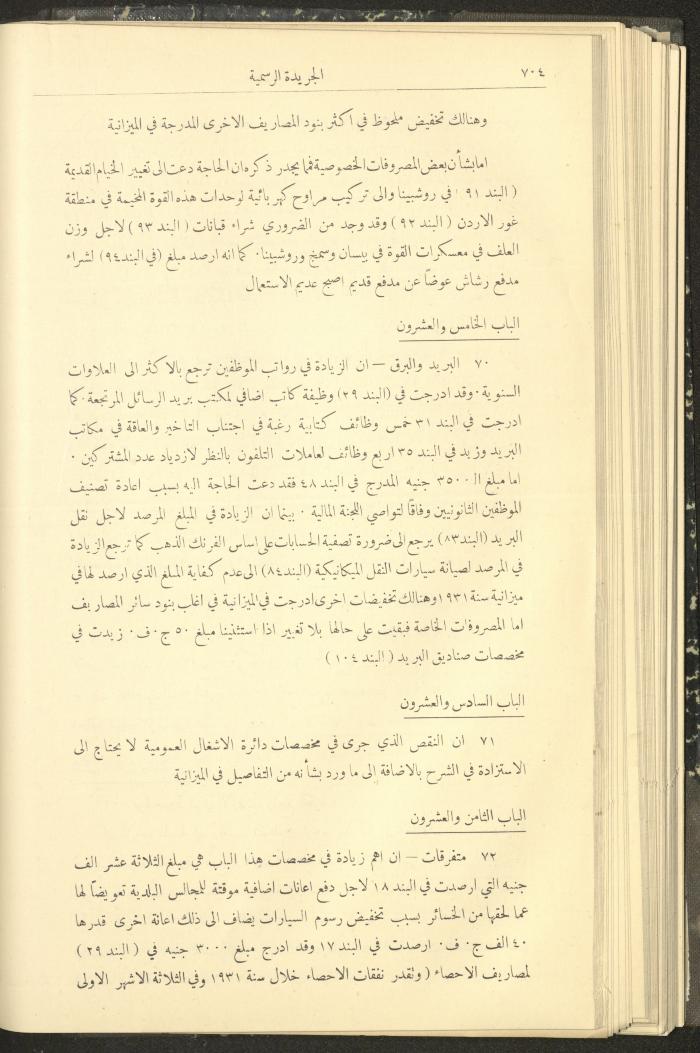 ٧٠٤
الجريدة الرسمية
وهنالك تخفيض ملحوظ في اكثر بنود المصاريف الاخرى المدرجة في الميزانية
اما بشأن بعض المصروفات الخصوصية فما يجدر ذكره ان الحاجة دعت الى تغيير الخيام القديمة
( البند ٩١ ) في روشبينا والى تركيب مراوح كهربائية لوحدات هذه القوة المخيمة في منطقة
غور الاردن ( البند ٩٢ ) وقد وجد من الضروري شراء قبانات ( البند ٩٣ ) لاجل وزن
العلف في معسكرات القوة في بيسان وسمخ وروشبينا · كما انه ارصد مبلغ (في البند ٩٤) لشراء
مدفع رشاش عوضاً عن مدفع قديم اصبح عديم الاستعمال
الباب الخامس والعشرون
٧٠ البريد والبرق — ان الزيادة في رواتب الموظفين ترجع بالاكثر الى العلاوات
السنوية · وقد ادرجت في (البند ٢٩) وظيفة كاتب اضافي لمكتب بريد الرسائل المرتجعة · كما
ادرجت في البند ٣١ خمس وظائف كتابية رغبة في اجتناب التاخير والعاقة في مكاتب
البريد وزيد في البند ٣٥ اربع وظائف لعاملات التلفون بالنظر لازدياد عدد المشتركين ·
اما مبلغ الـ ٣٥٠٠ جنيه المدرج في البند ٤٨ فقد دعت الحاجة اليه بسبب اعادة تصنيف
الموظفين الثانويين وفاقاً لتواصي اللجنة المالية · بينما ان الزيادة في المبلغ المرصد لاجل نقل
البريد (البند ٨٣) يرجع الى ضرورة تصفية الحسابات على اساس الفرنك الذهب كما ترجع الزيادة
في المرصد لصيانة سيارات النقل الميكانيكية (البند ٨٤) الى عدم كفاية المبلغ الذي ارصد لها في
ميزانية سنة ١٩٣١ وهنالك تخفيضات اخرى ادرجت في الميزانية في اغلب بنود سائر المصاريف
اما المصروفات الخاصة فبقيت على حالها بلا تغيير اذا استثنينا مبلغ ٥٠ ج · ف · زيدت في
مخصصات صناديق البريد ( البند ١٠٤ )
الباب السادس والعشرون
٧١ ان النقص الذي جرى في مخصصات دائرة الاشغال العمومية لا يحتاج الى
الاستزادة في الشرح بالاضافة الى ما ورد بشأنه من التفاصيل في الميزانية
الباب الثامن والعشرون
٧٢ متفرقات — ان اهم زيادة في مخصصات هذا الباب هي مبلغ الثلاثة عشر الف
جنيه التي ارصدت في البند ١٨ لاجل دفع اعانات اضافية موقتة للمجالس البلدية تعويضاً لها
عما لحقها من الخسائر بسبب تخفيض رسوم السيارات يضاف الى ذلك اعانة اخرى قدرها
٤٠ الف ج · ف · ارصدت في البند ١٧ وقد ادرج مبلغ ٣٠٠٠ جنيه في ( البند ٢٩ )
لمصاريف الاحصاء ( وتقدر نفقات الاحصاء خلال سنة ١٩٣١ وفي الثلاثة الاشهر الاولى